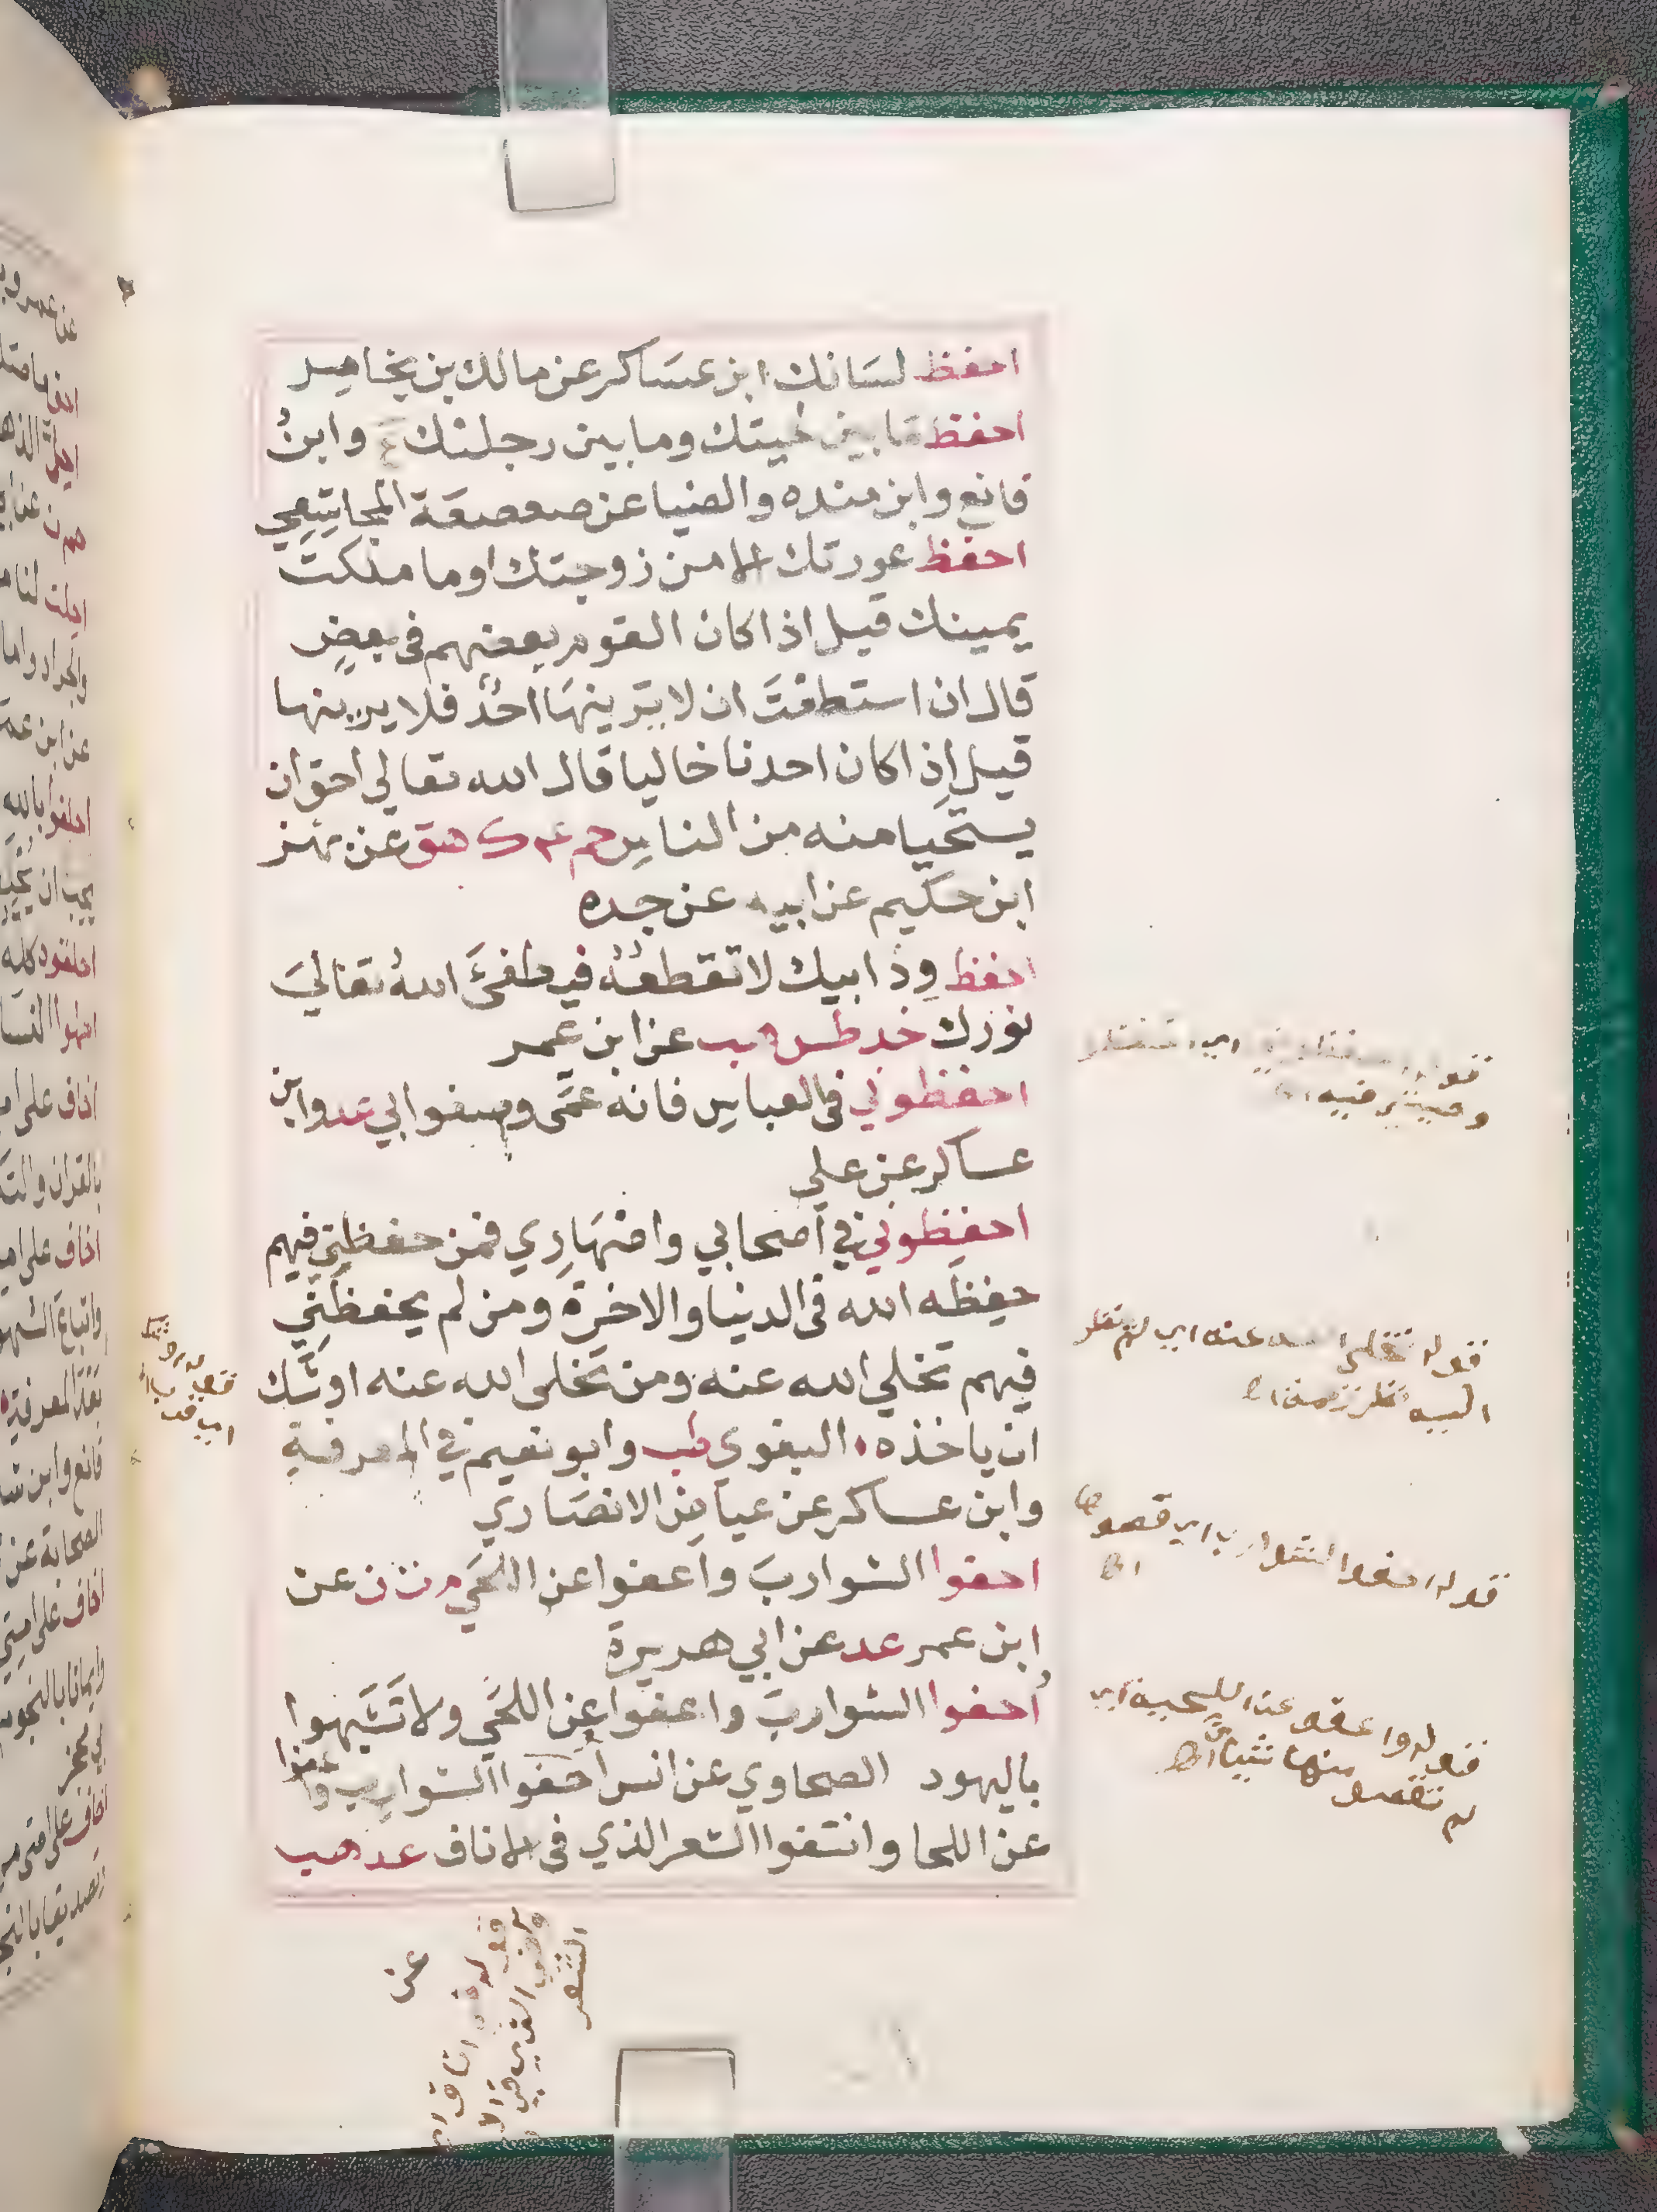 احفظ لسانك ابن عساكر عن مالك بن يخامر
احفظ ما بين لحييتك وما بين رجليك ع وابنُ
قانع وابن منده والضيا عن صعصعة المجاشعي
احفظ عورتك الا من زوجتك او ما ملكت
يمينك قيل اذا كان القوم بعضهم في بعضٍ
قال ان استطعتَ ان لا يرينهَا احدٌ فلا يرينها
قيل اِذا كان احدنا خاليا قال الله تعالى احق ان
يستحيا منه من الناسِ حم ع ك هق عن بهز
ابن حكيم عن ابيه عن جده
احفظ وِدَّ ابيك لا تقطعهُ فيطفئَ اللهُ تعاليَ
نورك خد طس هب عن ابن عمر
احفظوني في العباسِ فانه عمّى وصنو ابي عد وابن
عساكر عن علي
احفظوني في اَصحابي واصهَارِي فمن حفظنِي فيهم
حفِظَه الله فى الدنيا والاخرة ومن لم يحفظنِي
فيهم تخلي الله عنه ومن تخلى الله عنه اوشَك
ان ياخذه البغوي طب وابو نعيم في المعرفةِ
وابن عساكر عن عياض الانصَاري
احفوا الشواربَ واَعفوا عن اللحَي م ت ن عن
ابن عمر عد عن ابي هريرة
اُحفوا الشواربَ واعفوا عن اللحَي ولا تَشَبهوا
باليهود الطحاوي عن انس اُحفوا الشوارب واعفوا
عن اللحا وانتفوا الشعر الذي فى الاناف عد هب
عن
قوله تخلى الله عنه اي لم ينظر
اليه نظر رحمة اه
قوله احفوا الشوارب اي قصوها
اه
قوله واعفو عن اللحية اي
لم تقصو منها شيئا اه